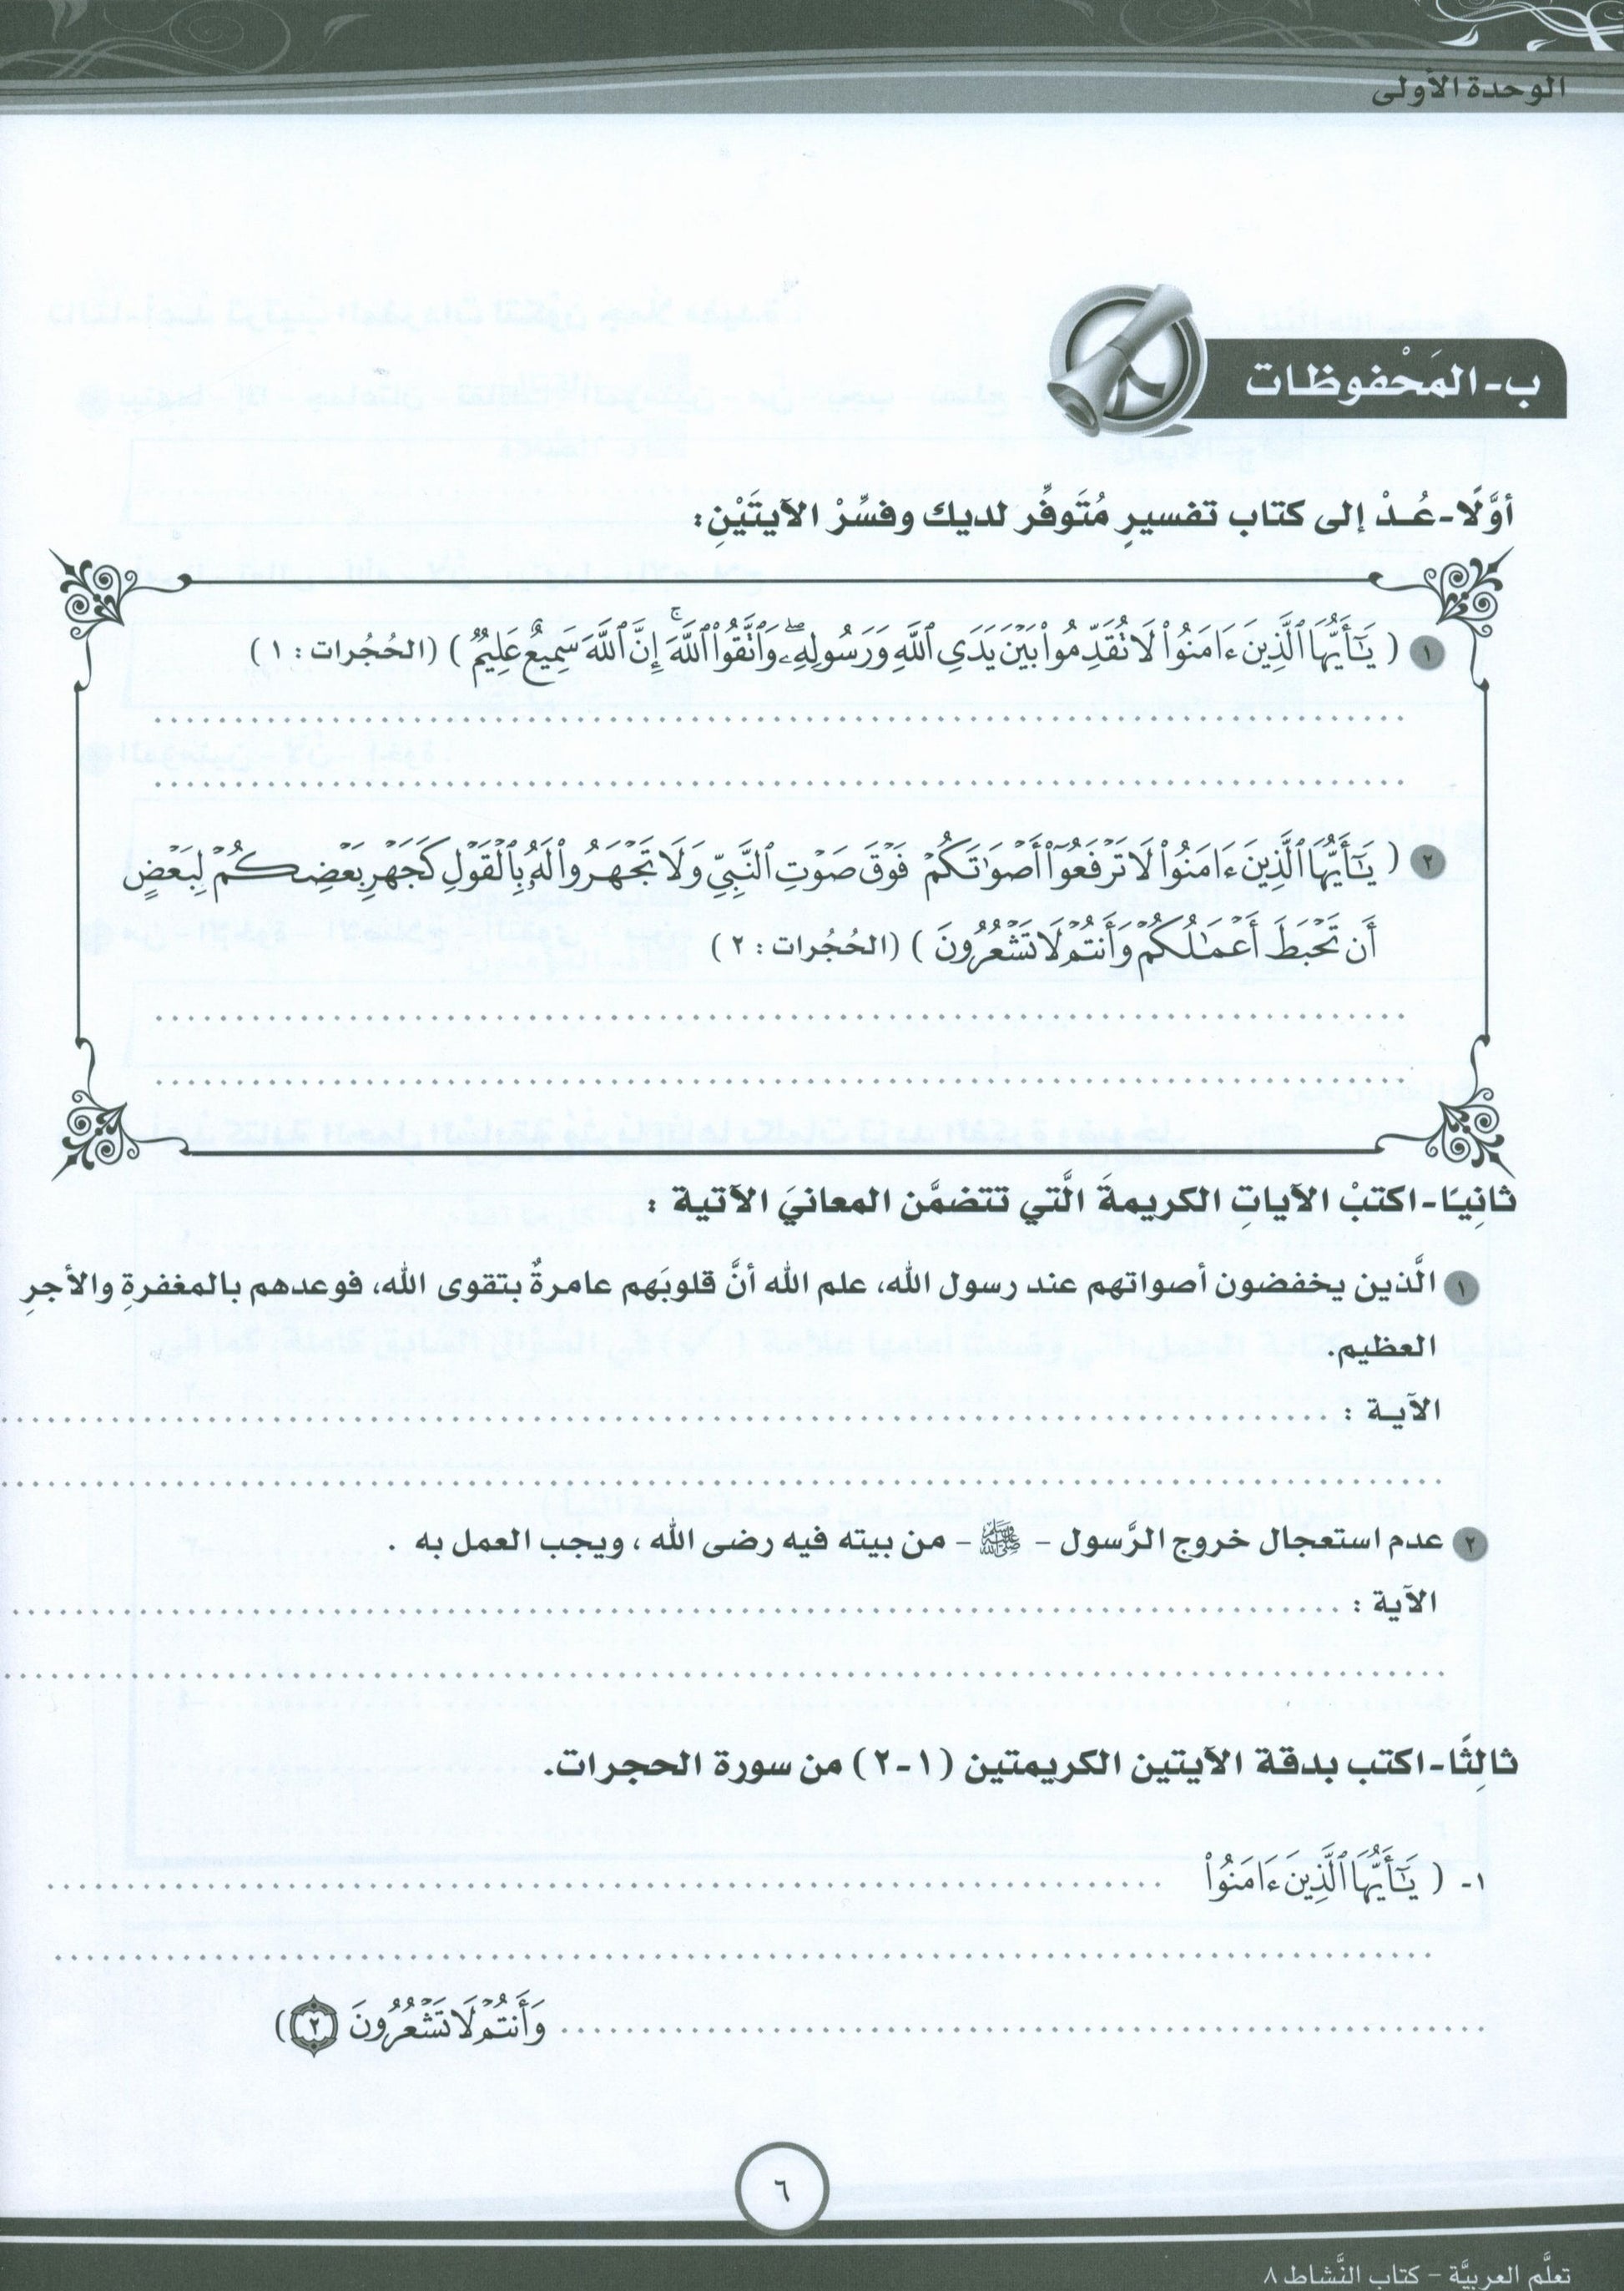 الوحدة الأولى
ب-المَحْفوظات
أوَّلًا-عُدْ إلى كتاب تفسيرٍ مُتَوفِّر لديك وفسِّرْ الآيتَيْنِ:
١ ( يَٰٓأَيُّهَا ٱلَّذِينَ ءَامَنُوا۟ لَا تُقَدِّمُوا۟ بَيْنَ يَدَىِ ٱللَّهِ وَرَسُولِهِۦۖ وَٱتَّقُوا۟ ٱللَّهَۚ إِنَّ ٱللَّهَ سَمِيعٌ عَلِيمٌ ) (الحُجُرات: ١)
٢ ( يَٰٓأَيُّهَا ٱلَّذِينَ ءَامَنُوا۟ لَا تَرْفَعُوٓا۟ أَصْوَٰتَكُمْ فَوْقَ صَوْتِ ٱلنَّبِىِّ وَلَا تَجْهَرُوا۟ لَهُۥ بِٱلْقَوْلِ كَجَهْرِ بَعْضِكُمْ لِبَعْضٍ
أَن تَحْبَطَ أَعْمَٰلُكُمْ وَأَنتُمْ لَا تَشْعُرُونَ ) (الحُجُرات: ٢)
ثانِيًا-اكتبْ الآياتِ الكريمةَ الَّتي تتضمَّن المعانيَ الآتية :
١ الَّذين يخفضون أصواتهم عند رسول الله، علم الله أنَّ قلوبَهم عامرةٌ بتقوى الله، فوعدهم بالمغفرةِ والأجرِ
العظيم.
الآيــة :
٢ عدم استعجال خروج الرَّسول - ﷺ - من بيته فيه رضى الله ، ويجب العمل به .
الآية :
ثالِثًا-اكتب بدقة الآيتين الكريمتين (١-٢) من سورة الحجرات.
١- ( يَٰٓأَيُّهَا ٱلَّذِينَ ءَامَنُوا۟
وَأَنتُمْ لَا تَشْعُرُونَ ٢)
٦
تعلَّم العربيَّة - كتاب النَّشاط ٨